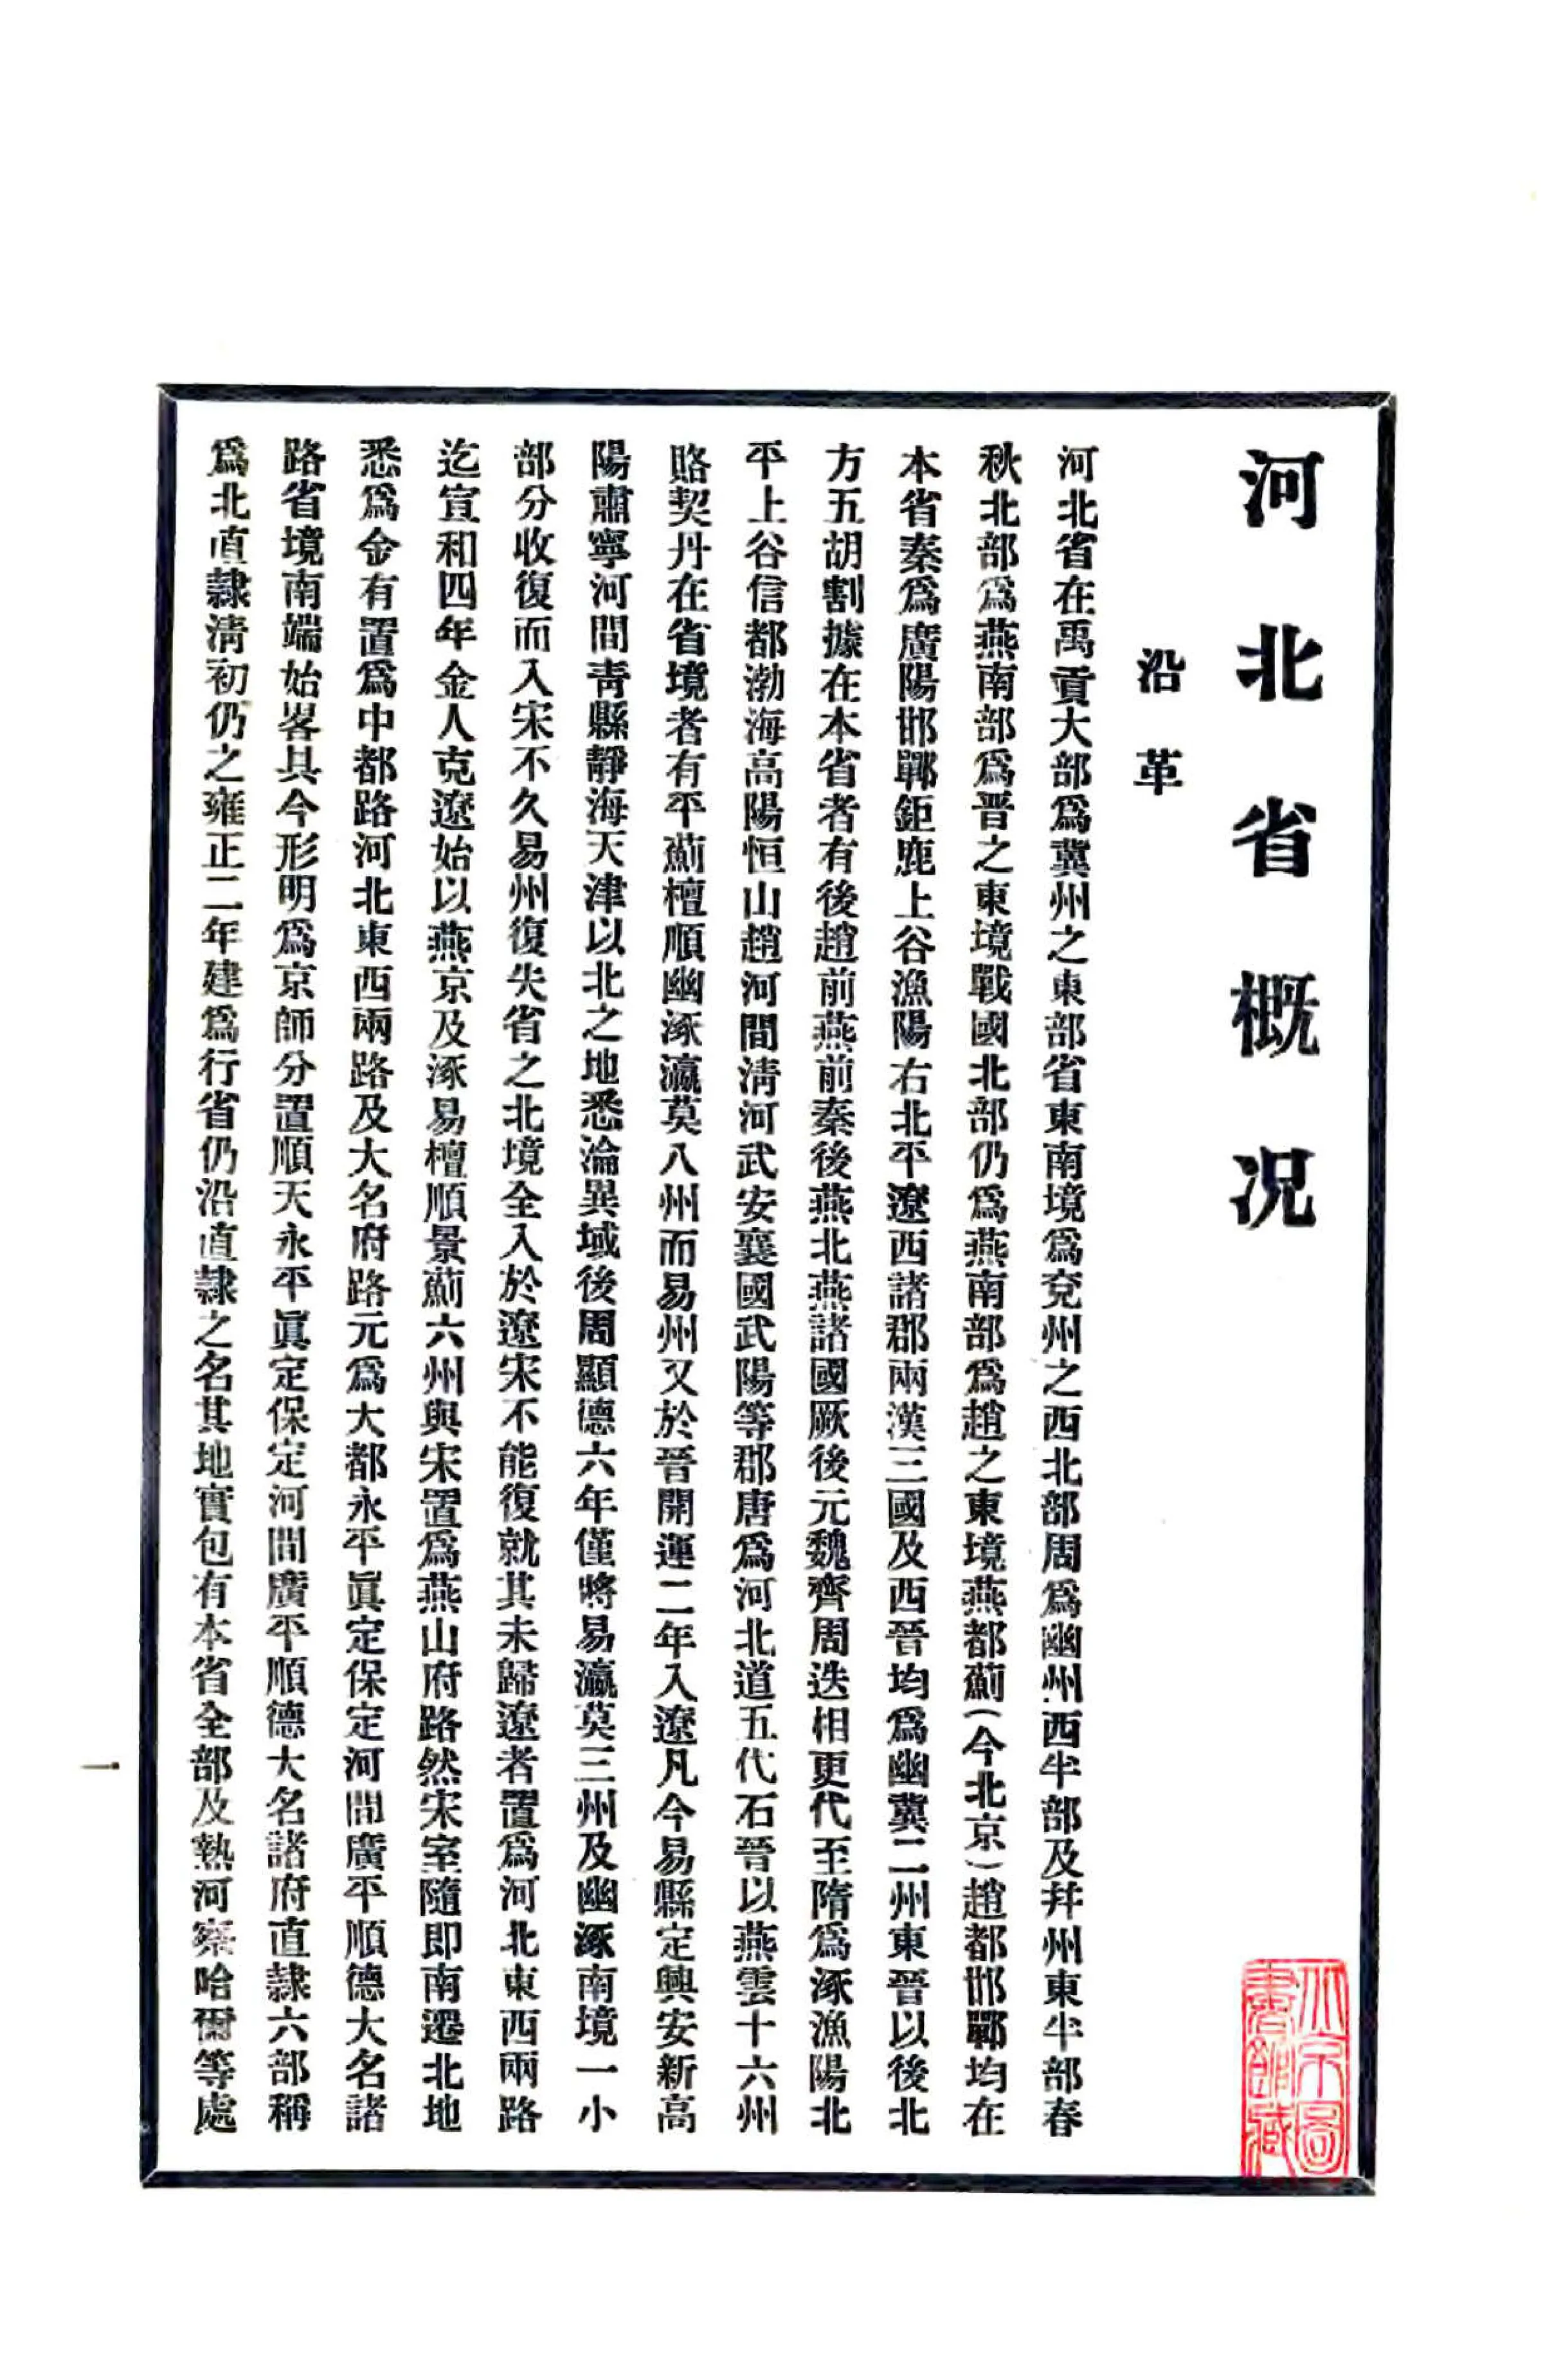 河北省概況
沿革
河北省在禹貢大部爲冀州之東部省東南境爲兗州之西北部周爲幽州西半部及幷州東半部春
秋北部爲燕南部爲晋之東境戰國北部仍爲燕南部爲趙之東境燕都薊(今北京)趙都邯鄲均在
本省秦爲廣陽邯鄲鉅鹿上谷漁陽右北平遼西諸郡兩漢三國及西晋均爲幽冀二州東晋以後北
方五胡割據在本省者有後趙前燕前秦後燕北燕諸國厥後元魏齊周迭相更代至隋爲涿漁陽北
平上谷信都渤海高陽恒山趙河間淸河武安襄國武陽等郡唐爲河北道五代石晋以燕雲十六州
賂契丹在省境者有平薊檀順幽涿瀛莫八州而易州又於晋開運二年入遼凡今易縣定興安新高
陽肅寧河間靑縣靜海天津以北之地悉淪異域後周顯德六年僅將易瀛莫三州及幽涿南境一小
部分收復而入宋不久易州復失省之北境全入於遼宋不能復就其未歸遼者置爲河北東西兩路
迄宣和四年金人克遼始以燕京及涿易檀順景薊六州與宋置爲燕山府路然宋室隨即南遷北地
悉爲金有置爲中都路河北東西兩路及大名府路元爲大都永平眞定保定河間廣平順德大名諸
路省境南端始畧具今形明爲京師分置順天永平眞定保定河間廣平順德大名諸府直隸六部稱
爲北直隸淸初仍之雍正二年建爲行省仍沿直隸之名其地實包有本省全部及熱河察哈爾等處
一
北京圖
書館藏